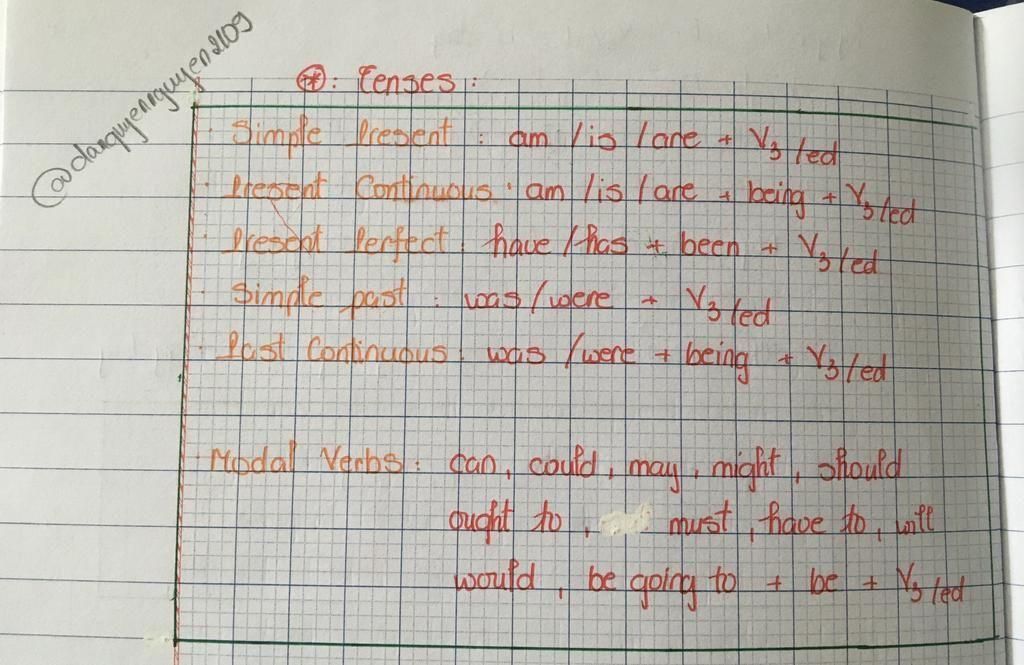 @danguyennguyen2109
⊛: Tenses:
· Simple Present: am / is / are + V3/ed
· Present Continuous: am / is / are + being + V3/ed
· Present Perfect: have / has + been + V3/ed
· Simple past: was / were + V3/ed
· Past Continuous: was / were + being + V3/ed
· Modal Verbs: can, could, may, might, should
ought to, must, have to, will
would, be going to + be + V3/ed